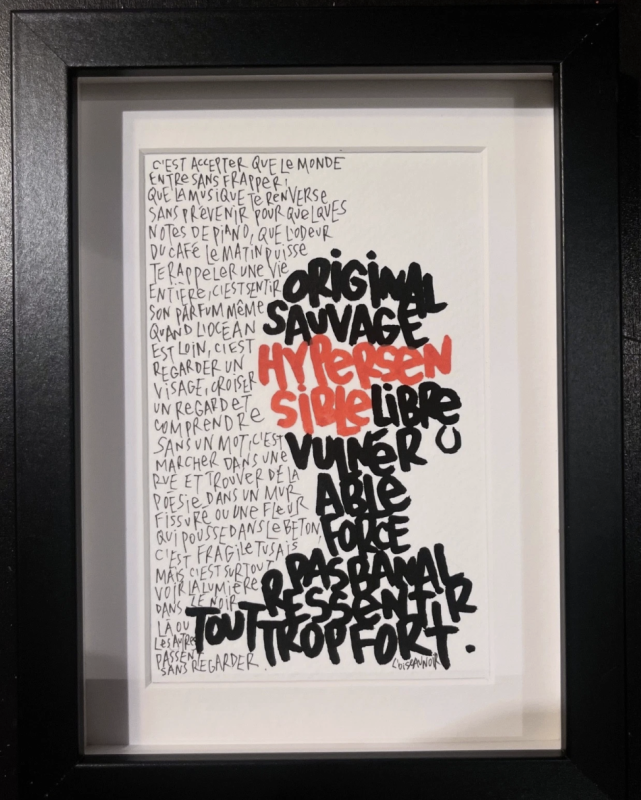 C'EST ACCEPTER QUE LE MONDE
ENTRE SANS FRAPPER,
QUE LA MUSIQUE TE RENVERSE
SANS PRÉVENIR POUR QUELQUES
NOTES DE PIANO, QUE L'ODEUR
DU CAFÉ LE MATIN PUISSE
TE RAPPELER UNE VIE
ENTIÈRE, C'EST SENTIR
SON PARFUM MÊME
QUAND L'OCÉAN
EST LOIN, C'EST
REGARDER UN
VISAGE, CROISER
UN REGARD ET
COMPRENDRE
SANS UN MOT, C'EST
MARCHER DANS UNE
RUE ET TROUVER DE LA
POÉSIE DANS UN MUR
FISSURÉ OU UNE FLEUR
QUI POUSSE DANS LE BÉTON,
C'EST FRAGILE TU SAIS
MAIS C'EST SURTOUT
VOIR LA LUMIÈRE
DANS LE NOIR
LÀ OÙ
LES AUTRES
PASSENT
SANS REGARDER.
ORIGINAL
SAUVAGE
HYPERSEN
SIBLE LIBRE
VULNÉR
ABLE
FORCE
PAS BANAL
RESSENTIR
TOUT TROP FORT.
L'OISEAU NOIR